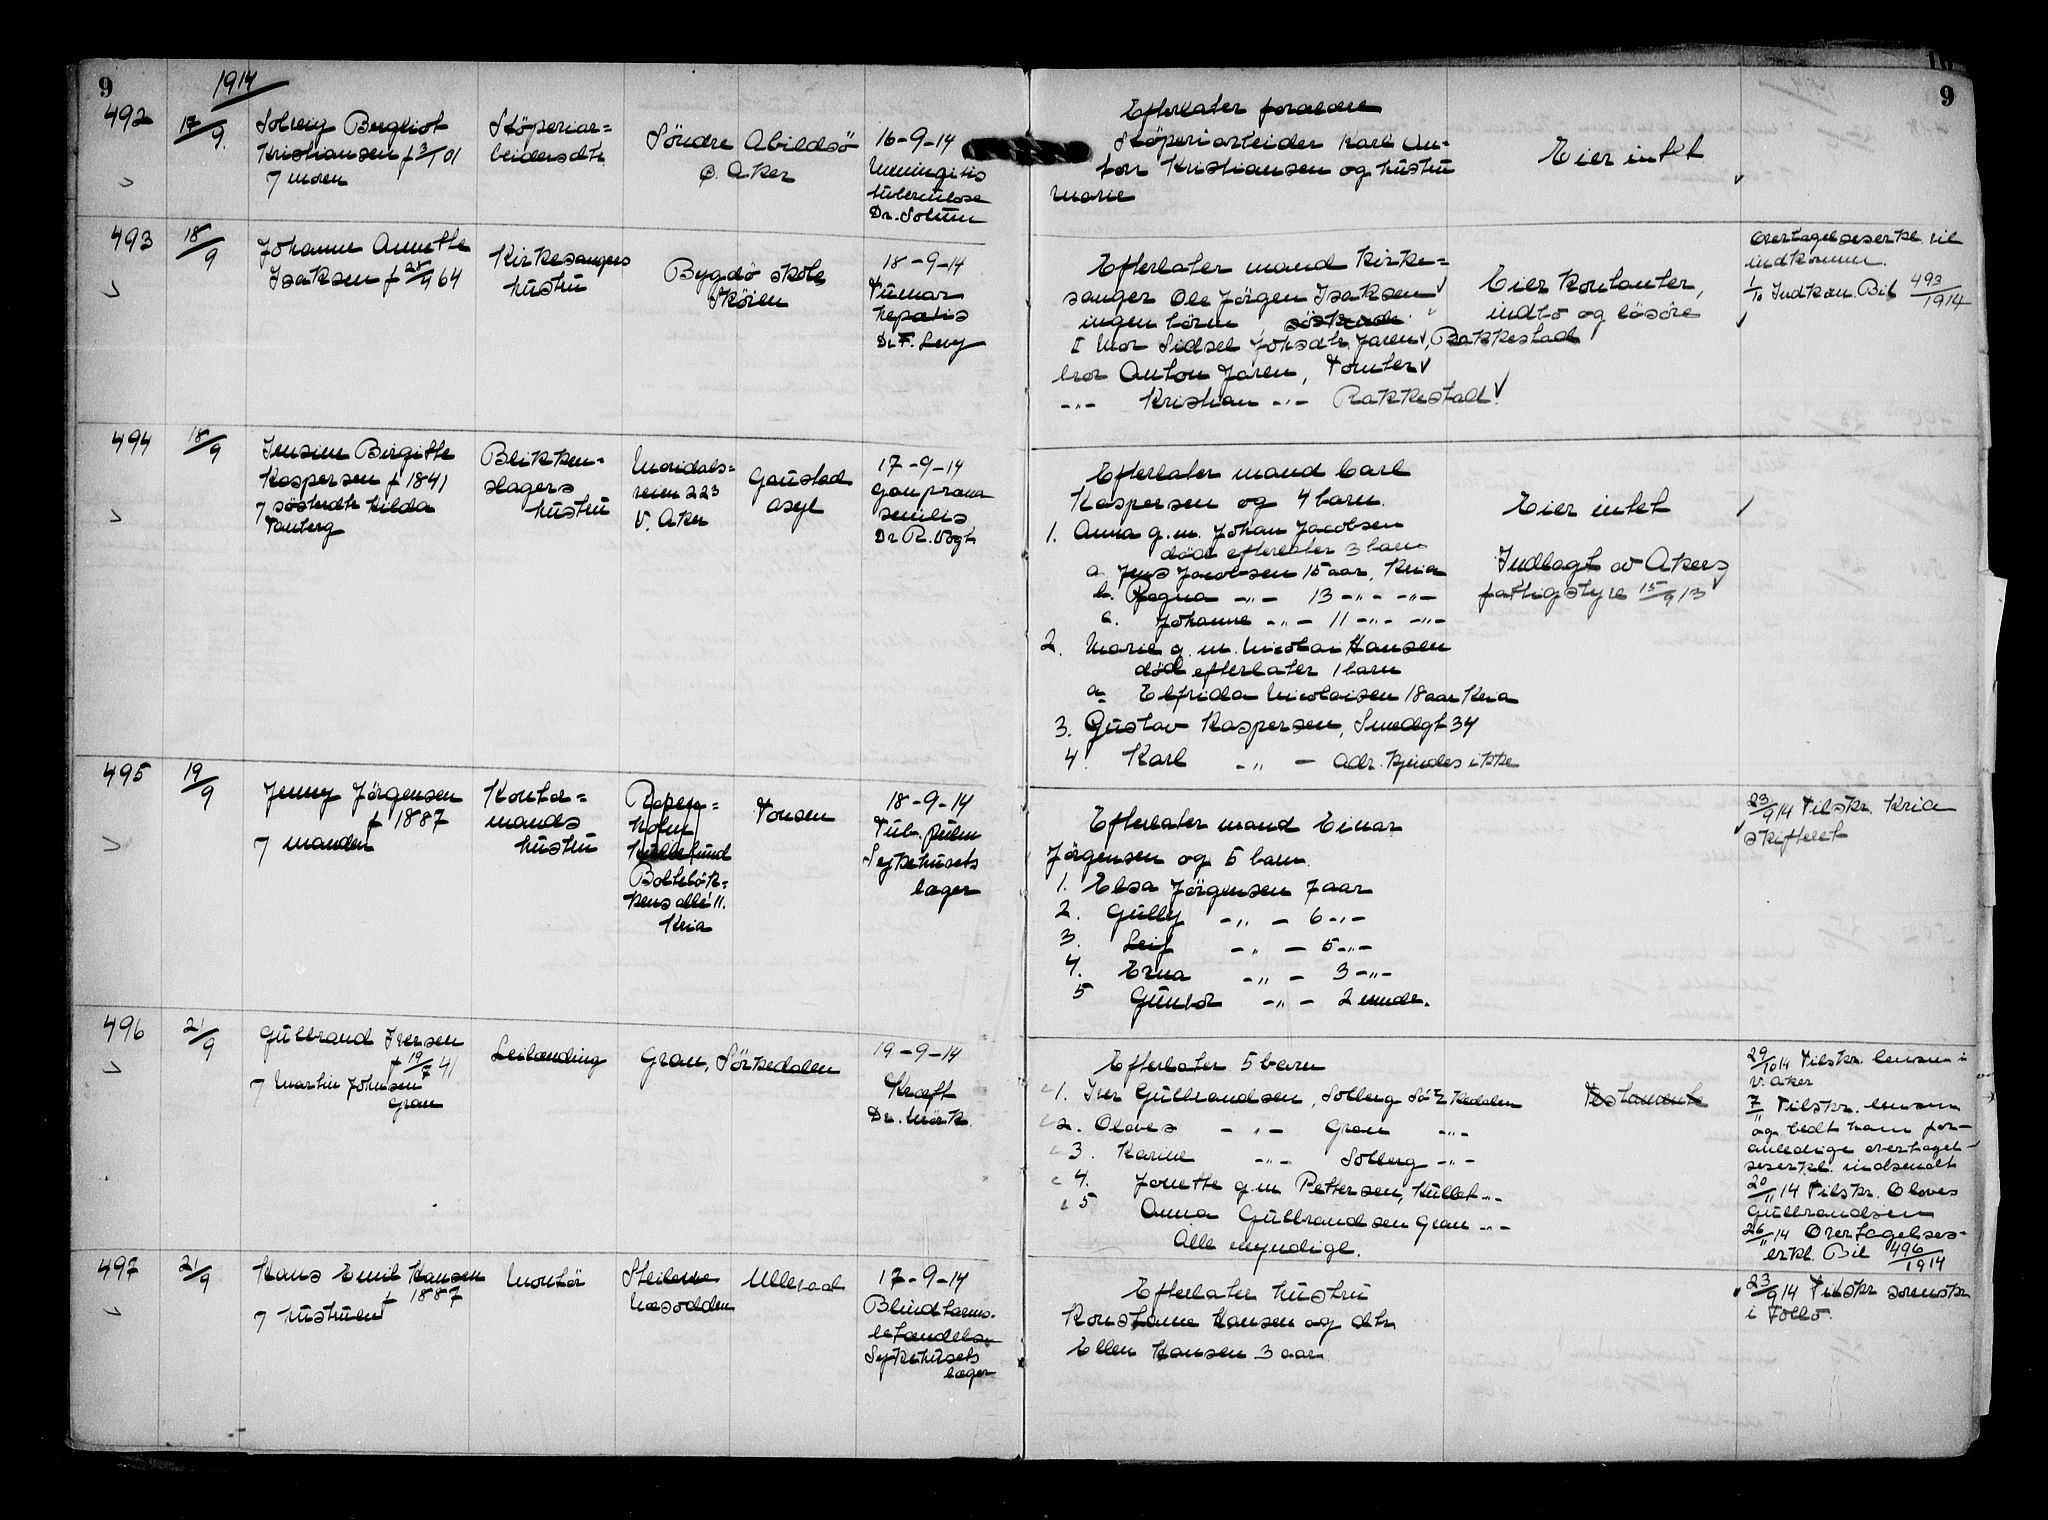 9
1914
492
17/9
Solveig Bergliot
Kristiansen f 3/1 01
7 moren
Stöperiar=
beidersdtr
Söndre Abildsö
Ø. Aker
16-9-14
Meningitis
tuberculosa
Dr. Solum
493
18/9
Johanne Annette
Isaksen f 64
Kirkesangers
hustru
Bygdö skole
Sköien
18-9-14
Tumor
hepatis
Dr F. Levy
494
18/9
Jensine Birgitte
Kaspersen f 1841
7 søsterdtr Hilda
Tanberg
Blikken-
slagers
hustru
Maridals=
veien 223
V. Aker
Gaustad
asyl
17-9-14
senilis
Dr R. Vogt
495
19/9
Jenny Jörgensen
f 1887
7 manden
Kontor=
mands
hustru
kens alle 11.
Kria
Tonsen
18-9-14
Tub. pulm
Sykehusets
læger
496
21/9
Gulbrand Iversen
f 19/7 41
7 Martin Johnsen
Gran
Leilending
Gran, Sörkedalen
19-9-14
Kræft
Dr. Mörk
497
21/9
Hans Emil Hansen
f 1887
7 hustruen
Montör
Steilene
Næsodden
Ullevaal
17-9-14
Blindtarms-
betændelse
Sykehusets
læger
9
Efterlater forældre
Stöperiarbeider Karl An-
ton Kristiansen og hustru
Marie
Eier intet
Efterlater mand Kirke=
sanger Ole Jörgen Isaksen
ingen börn, söskende
I Mor Sidsel Johsdtr. Jaren, Rakkestad
bror Anton Jaren, Tomter
-"- Kristian -"- Rakkestad
Eier kontanter,
indbo og lösöre
Overtagelseserkl. vil
indkomme.
1/10 Indkom. Bil 493/1914
Efterlater mand Carl
Kaspersen og 4 barn.
1. Anna g.m. Johan Jacobsen
död efterlater 3 barn
a Jens Jacobsen 15 aar, Kria
b. Ragna -"- 13 -"- -"-
c. Johanne -"- 11 -"- -"-
2. Marie g.m. Nicolai Hansen
död efterlater 1 barn
a Elfrida Nicolaisen 18 aar Kria
3. Gustav Kaspersen, Smedgt 34
4. Karl -"- adr. kjendes ikke
Eier intet
Indlagt av Akers
fattigstyre 15/9 13
Efterlater mand Einar
Jörgensen og 5 barn.
1. Elsa Jörgensen 7 aar
2. Gully -"- 6 -"-
3. Leif -"- 5 -"-
4. Erna -"- 3 -"-
5 Gunvor -"- 2 mndr.
23/9 14 Tilskr. Kria
skifteret
Efterlater 5 barn
1. Iver Gulbrandsen, Solberg Sörkedalen
2. Oloves -"- Gran -"-
3. Karine -"- Solberg -"-
4. Jonette g.m. Pettersen, Hullet -"-
5 Anna Gulbrandsen Gran -"-
Alle myndige.
Testamente
29/10 14 Tilskr. lensm i
V. Aker
7/11 Tilskr. lensm
og bedt ham for-
anledige overtagel-
seserkl. indsendt
20/11 14 Tilskr. Oloves
Gulbrandsen
26/11 14 Overtagelses-
erkl. Bil 496/1914
Efterlater hustru
Konstanse Hansen og dtr.
Ellen Hansen 3 aar
23/9 14 Tilskr sorenskr
i Follo.